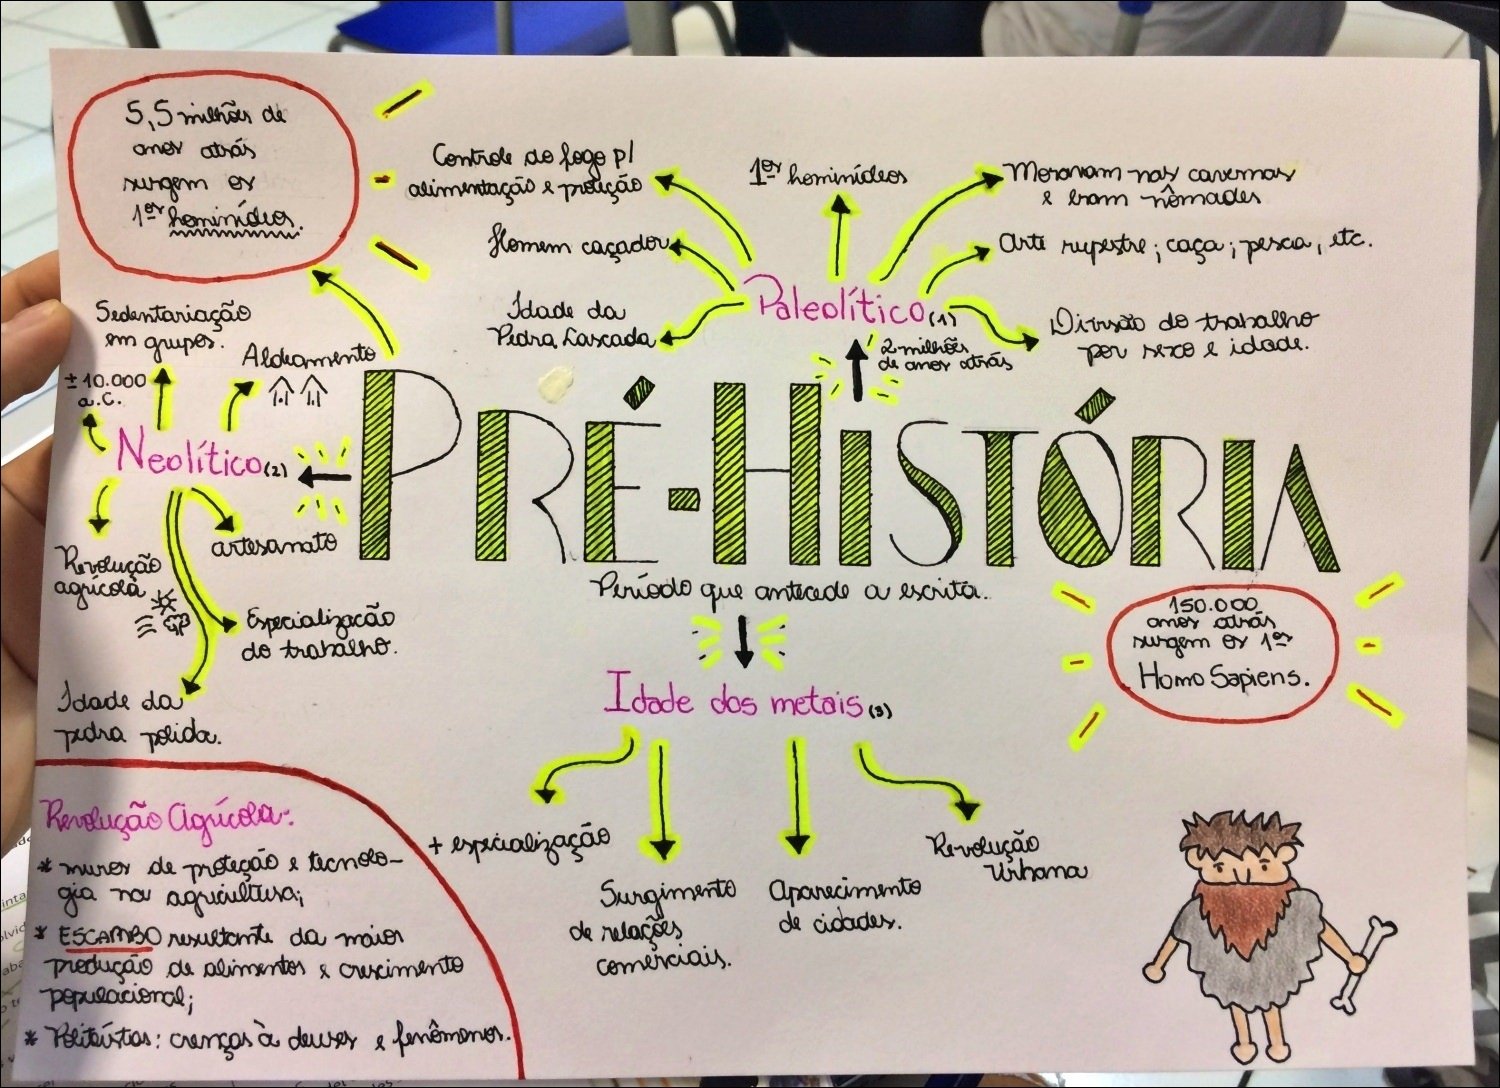 5,5 milhões de
anos atrás
surgem os
1os hominídeos.
Controle do fogo p/
alimentação e proteção
Homem caçador
Idade da
Pedra Lascada
1os hominídeos
Moravam nas cavernas
e eram nômades
Arte rupestre; caça; pesca, etc.
Divisão do trabalho
por sexo e idade.
Paleolítico (1)
2 milhões
de anos atrás
Sedentariação
em grupos.
Aldeamento
± 10.000
a.C.
Neolítico (2)
Revolução
agrícola
artesanato
Especialização
do trabalho.
Idade da
pedra polida.
PRÉ-HISTÓRIA
Período que antecede a escrita.
150.000
anos atrás
surgem os 1os
Homo Sapiens.
Idade dos metais (3)
+ especialização
Surgimento
de relações
comerciais.
Aparecimento
de cidades.
Revolução
Urbana
Revolução Agrícola:
* muros de proteção e tecnolo-
gia na agricultura;
* ESCAMBO resultante da maior
produção de alimentos e crescimento
populacional;
* Politeístas: crenças à deuses e fenômenos.